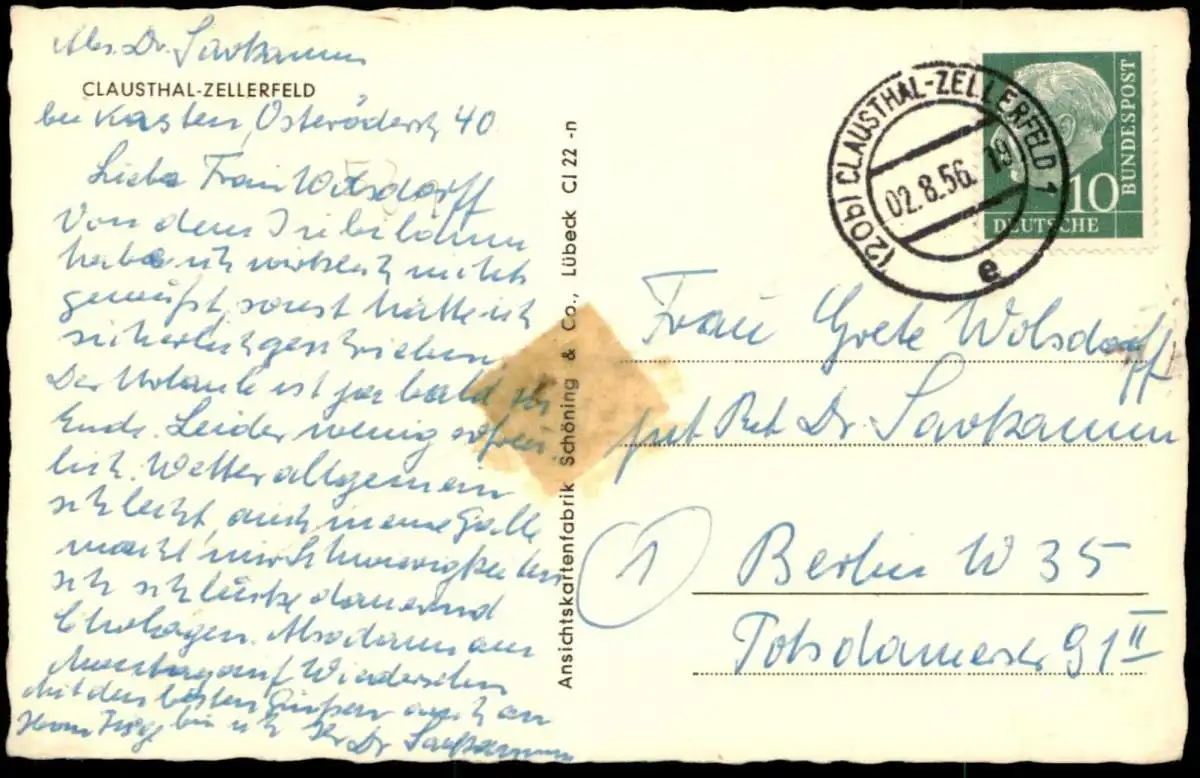 Abs. Dr. Savkamm
CLAUSTHAL-ZELLERFELD
bei Kasten, Osteröderstr 40
Liebe Frau Wolsdorff
Von dem
habe ich wirklich nichts
gewußt, sonst hätte ich
sicherlich geschrieben
Der Urlaub ist ja bald zu
Ende. Leider wenig erfreu-
lich. Wetter allgemein
schlecht, auch meine Galle
macht mir Schwierigkeiten
ich schlucke dauernd
Cholagen. Also dann am
Montag auf Wiedersehn
Mit den besten Grüßen auch an
bin ich Ihr Dr Savkamm
Ansichtskartenfabrik Schöning & Co., Lübeck Cl 22 -n
(20b) CLAUSTHAL-ZELLERFELD 1
02.8.56. 19
e
BUNDESPOST
10
DEUTSCHE
Frau Grete Wolsdorff
Dr Savkamm
1
Berlin W 35
Potsdamerstr 91 II